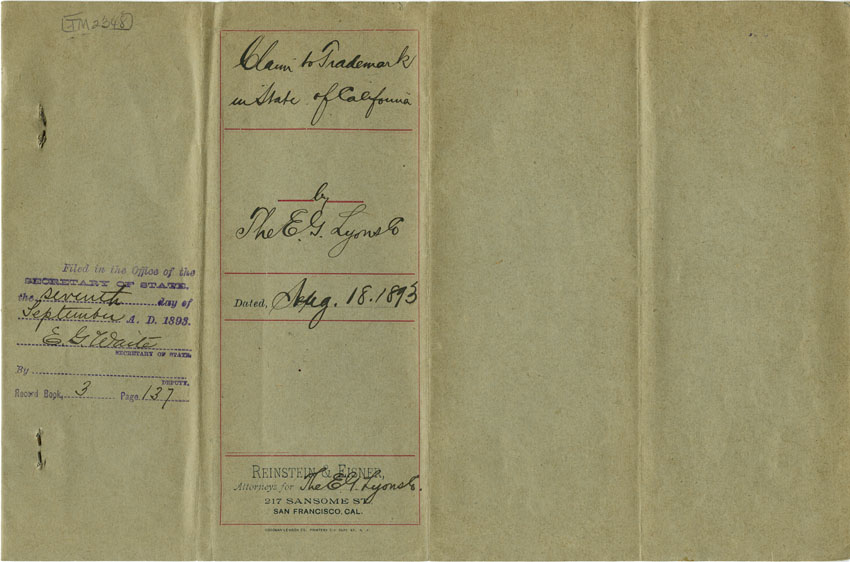 TM2348
Claim to Trademark
in State of California
by
The E. G. Lyons Co
Dated, Aug. 18. 1893
Filed in the Office of the
SECRETARY OF STATE,
the seventh day of
September A. D. 1893.
E. G. Waite
SECRETARY OF STATE.
By
DEPUTY.
Record Book, 3 Page. 137
REINSTEIN & EISNER,
Attorneys for The E. G. Lyons Co.
217 SANSOME ST.
SAN FRANCISCO, CAL.